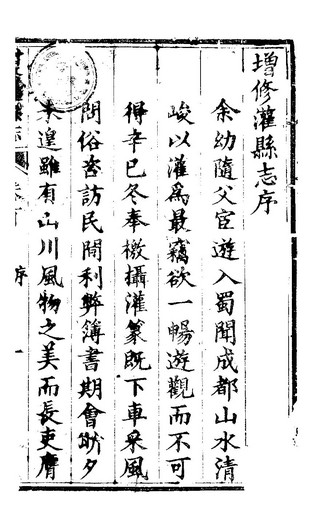 增修灌縣志序
余幼隨父宦遊入蜀聞成都山水清
峻以灌爲最竊欲一暢遊觀而不可
得辛巳冬奉檄攝灌篆既下車采風
問俗咨訪民間利弊簿書期會昕夕
未遑雖有山川風物之美而長吏膺
序 一